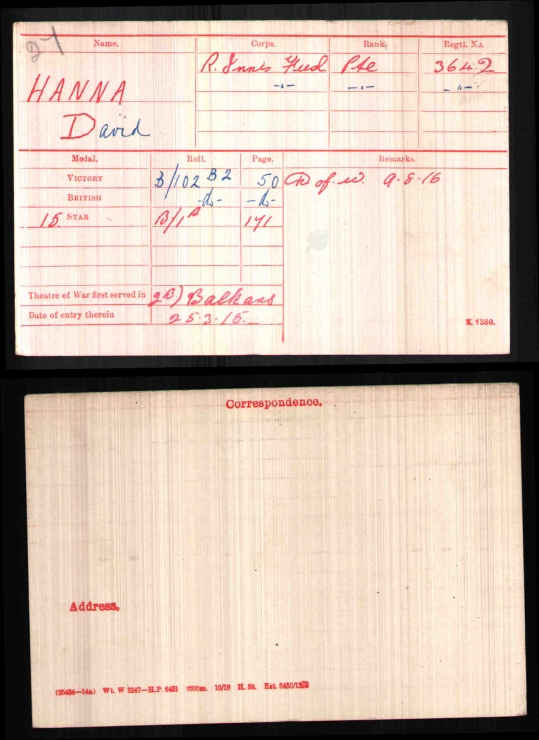 Name. Corps. Rank. Regtl. No.
HANNA R. Innis Fus Pte 3642
David -"- -"- -"-
Medal. Roll. Page. Remarks.
VICTORY B/102 B2 50 D of W. 9.8.16
BRITISH -do- -do-
15 STAR B/1 B 171
Theatre of War first served in (2B) Balkans
Date of entry therein 25.3.15.
K. 1380.
Correspondence.
Address.
Wt. W 3347—H.P. 10/19 H. St.